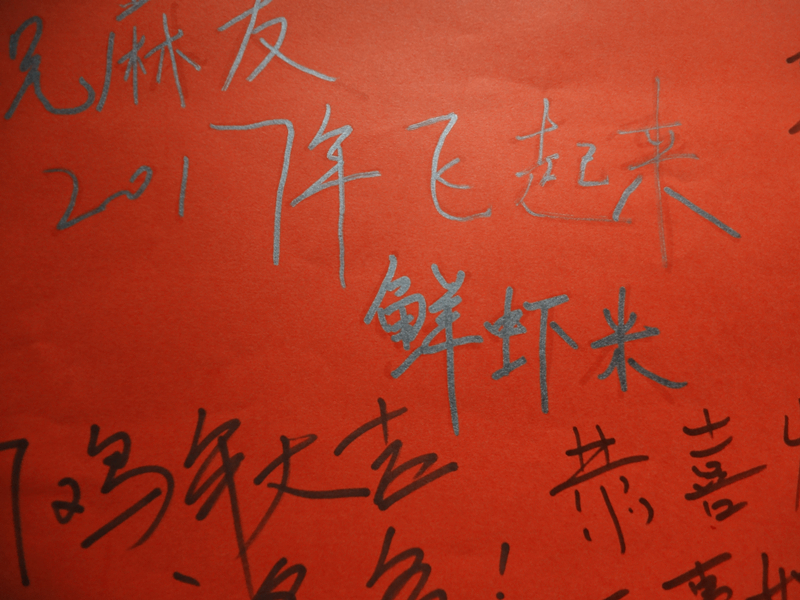 兄麻友
2017年飞起来
鲜虾米
7鸡年大吉
恭喜